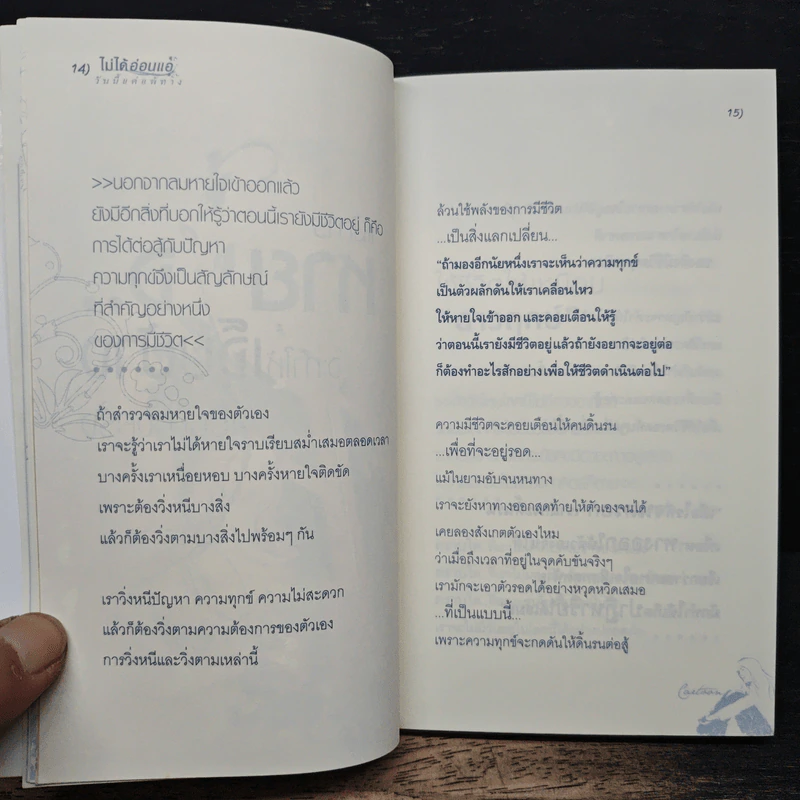 14) ไม่ได้อ่อนแอ
วันนี้แค่แพ้ทาง
>>นอกจากลมหายใจเข้าออกแล้ว
ยังมีอีกสิ่งที่บอกให้รู้ว่าตอนนี้เรายังมีชีวิตอยู่ ก็คือ
การได้ต่อสู้กับปัญหา
ความทุกข์จึงเป็นสัญลักษณ์
ที่สำคัญอย่างหนึ่ง
ของการมีชีวิต<<
ถ้าสำรวจลมหายใจของตัวเอง
เราจะรู้ว่าเราไม่ได้หายใจราบเรียบสม่ำเสมอตลอดเวลา
บางครั้งเราเหนื่อยหอบ บางครั้งหายใจติดขัด
เพราะต้องวิ่งหนีบางสิ่ง
แล้วก็ต้องวิ่งตามบางสิ่งไปพร้อมๆ กัน
เราวิ่งหนีปัญหา ความทุกข์ ความไม่สะดวก
แล้วก็ต้องวิ่งตามความต้องการของตัวเอง
การวิ่งหนีและวิ่งตามเหล่านี้
15)
ล้วนใช้พลังของการมีชีวิต
...เป็นสิ่งแลกเปลี่ยน...
“ถ้ามองอีกนัยหนึ่งเราจะเห็นว่าความทุกข์
เป็นตัวผลักดันให้เราเคลื่อนไหว
ให้หายใจเข้าออก และคอยเตือนให้รู้
ว่าตอนนี้เรายังมีชีวิตอยู่ แล้วถ้ายังอยากจะอยู่ต่อ
ก็ต้องทำอะไรสักอย่าง เพื่อให้ชีวิตดำเนินต่อไป”
ความมีชีวิตจะคอยเตือนให้คนดิ้นรน
...เพื่อที่จะอยู่รอด...
แม้ในยามอับจนหนทาง
เราจะยังหาทางออกสุดท้ายให้ตัวเองจนได้
เคยลองสังเกตตัวเองไหม
ว่าเมื่อถึงเวลาที่อยู่ในจุดคับขันจริงๆ
เรามักจะเอาตัวรอดได้อย่างหวุดหวิดเสมอ
...ที่เป็นแบบนี้...
เพราะความทุกข์จะกดดันให้ดิ้นรนต่อสู้